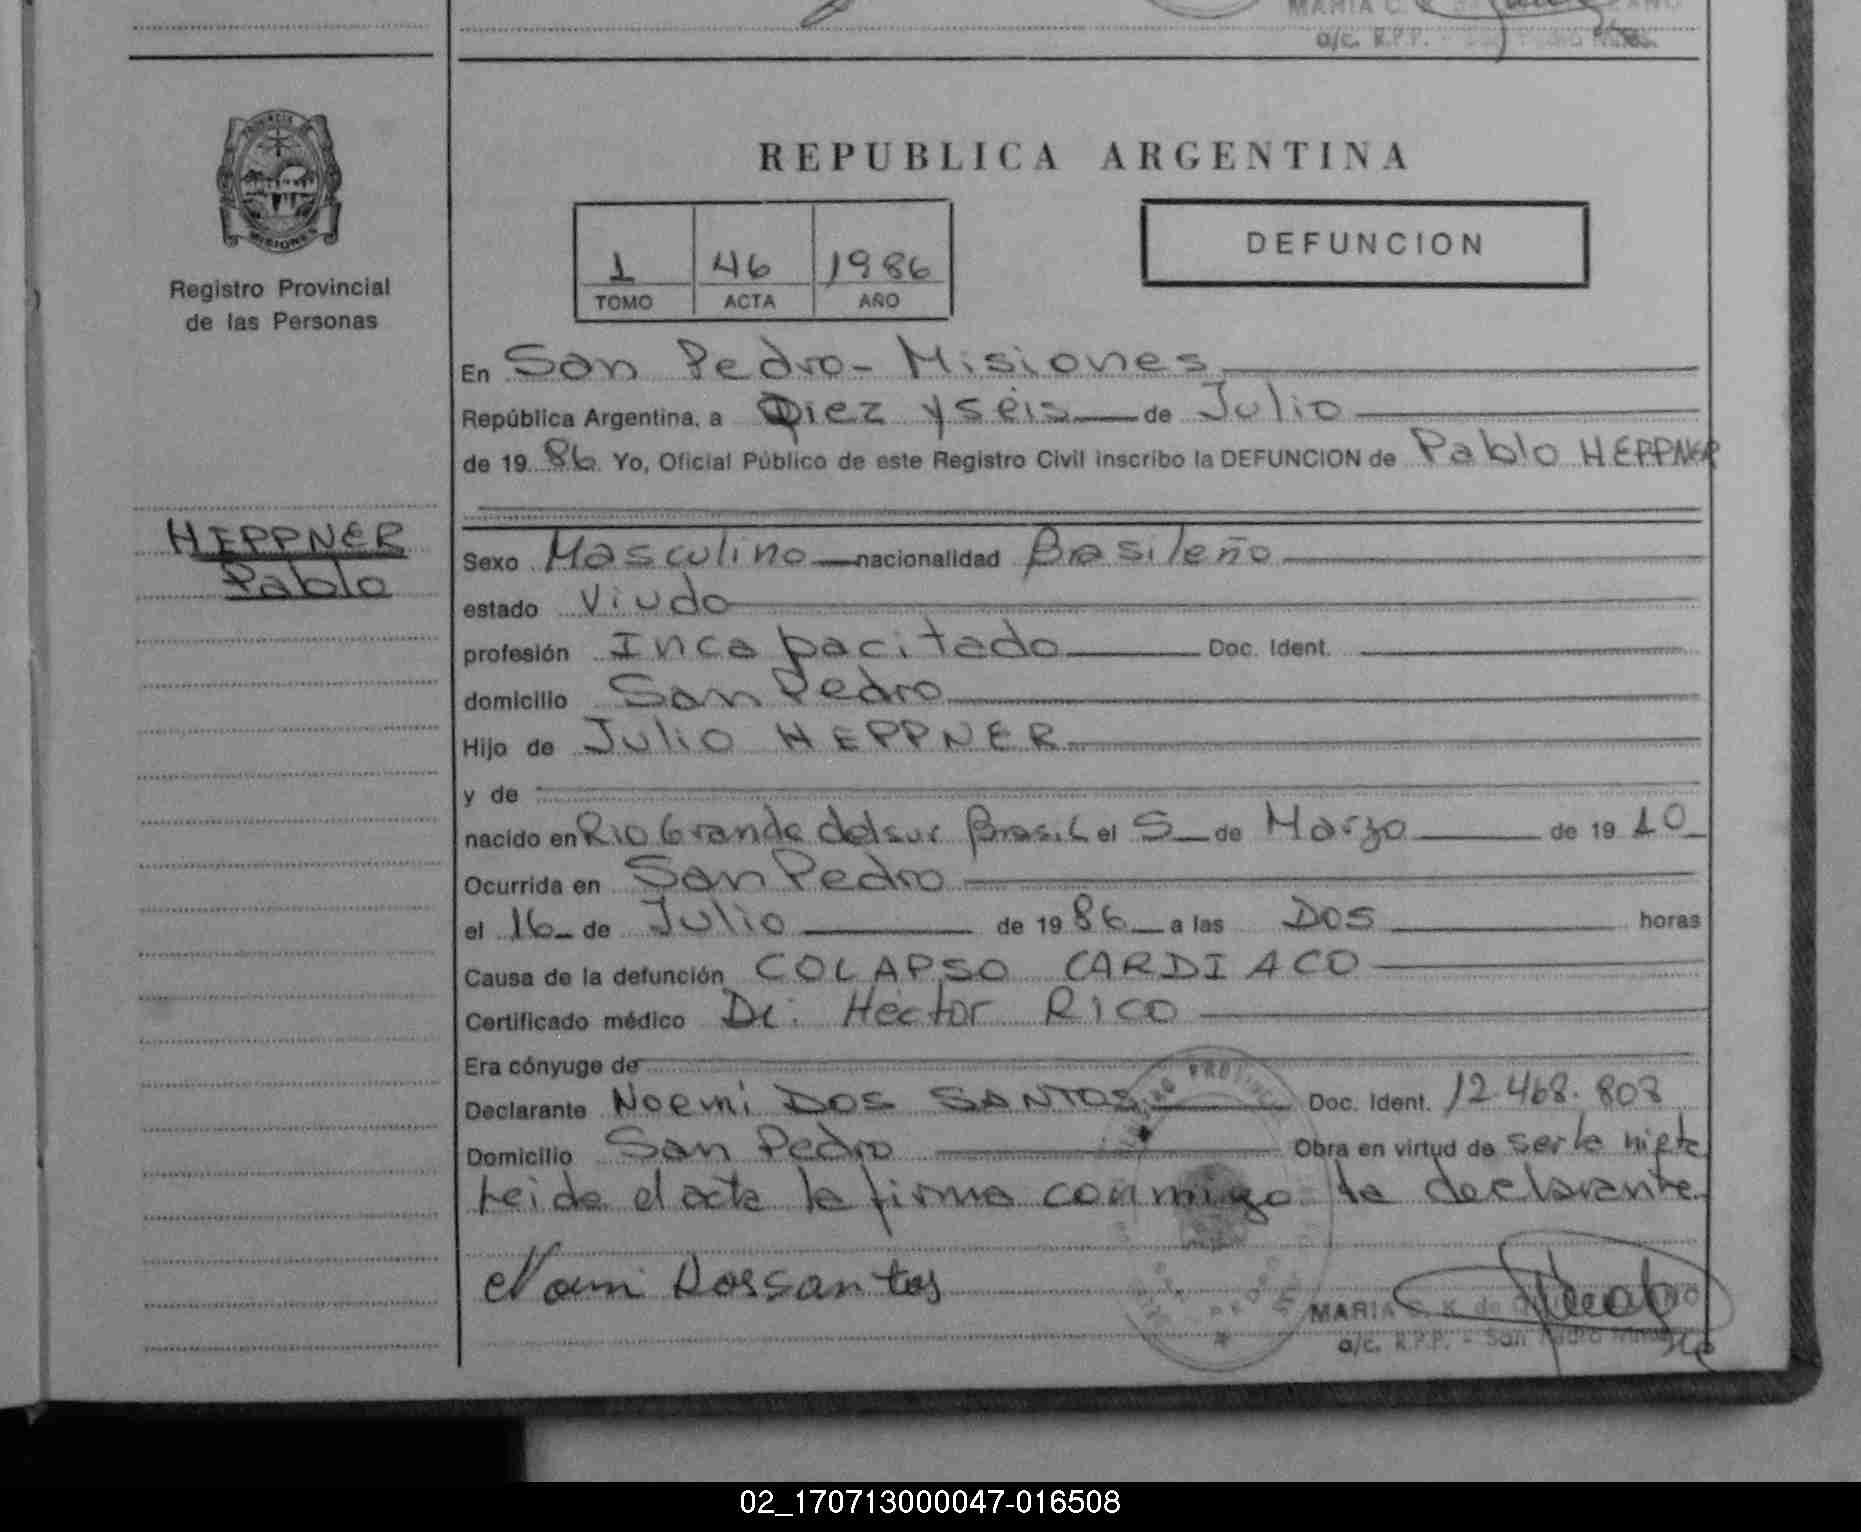 MARIA C.
a/c. R.P.P. - San Pedro Mnes.
PROVINCIA DE
MISIONES
Registro Provincial
de las Personas
HEPPNER
Pablo
REPUBLICA ARGENTINA
1 46 1986
TOMO ACTA AÑO
DEFUNCION
En San Pedro - Misiones
República Argentina, a Diez y seis de Julio
de 19 86 Yo, Oficial Público de este Registro Civil inscribo la DEFUNCION de Pablo HEPPNER
Sexo Masculino nacionalidad Brasileño
estado Viudo
profesión Incapacitado Doc. Ident.
domicilio San Pedro
Hijo de Julio HEPPNER
y de
nacido en Rio Grande del sur Brasil el 5 de Marzo de 19 10
Ocurrida en San Pedro
el 16 de Julio de 19 86 a las Dos horas
Causa de la defunción COLAPSO CARDIACO
Certificado médico Dr. Héctor RICO
Era cónyuge de
Declarante Noemi DOS SANTOS Doc. Ident. 12.468.808
Domicilio San Pedro Obra en virtud de ser la nieta
Leida el acta la firma conmigo la declarante
Noemi Dossantos
MARIA C. K. de
a/c. R.P.P. - San Pedro Mnes.
02_170713000047-016508